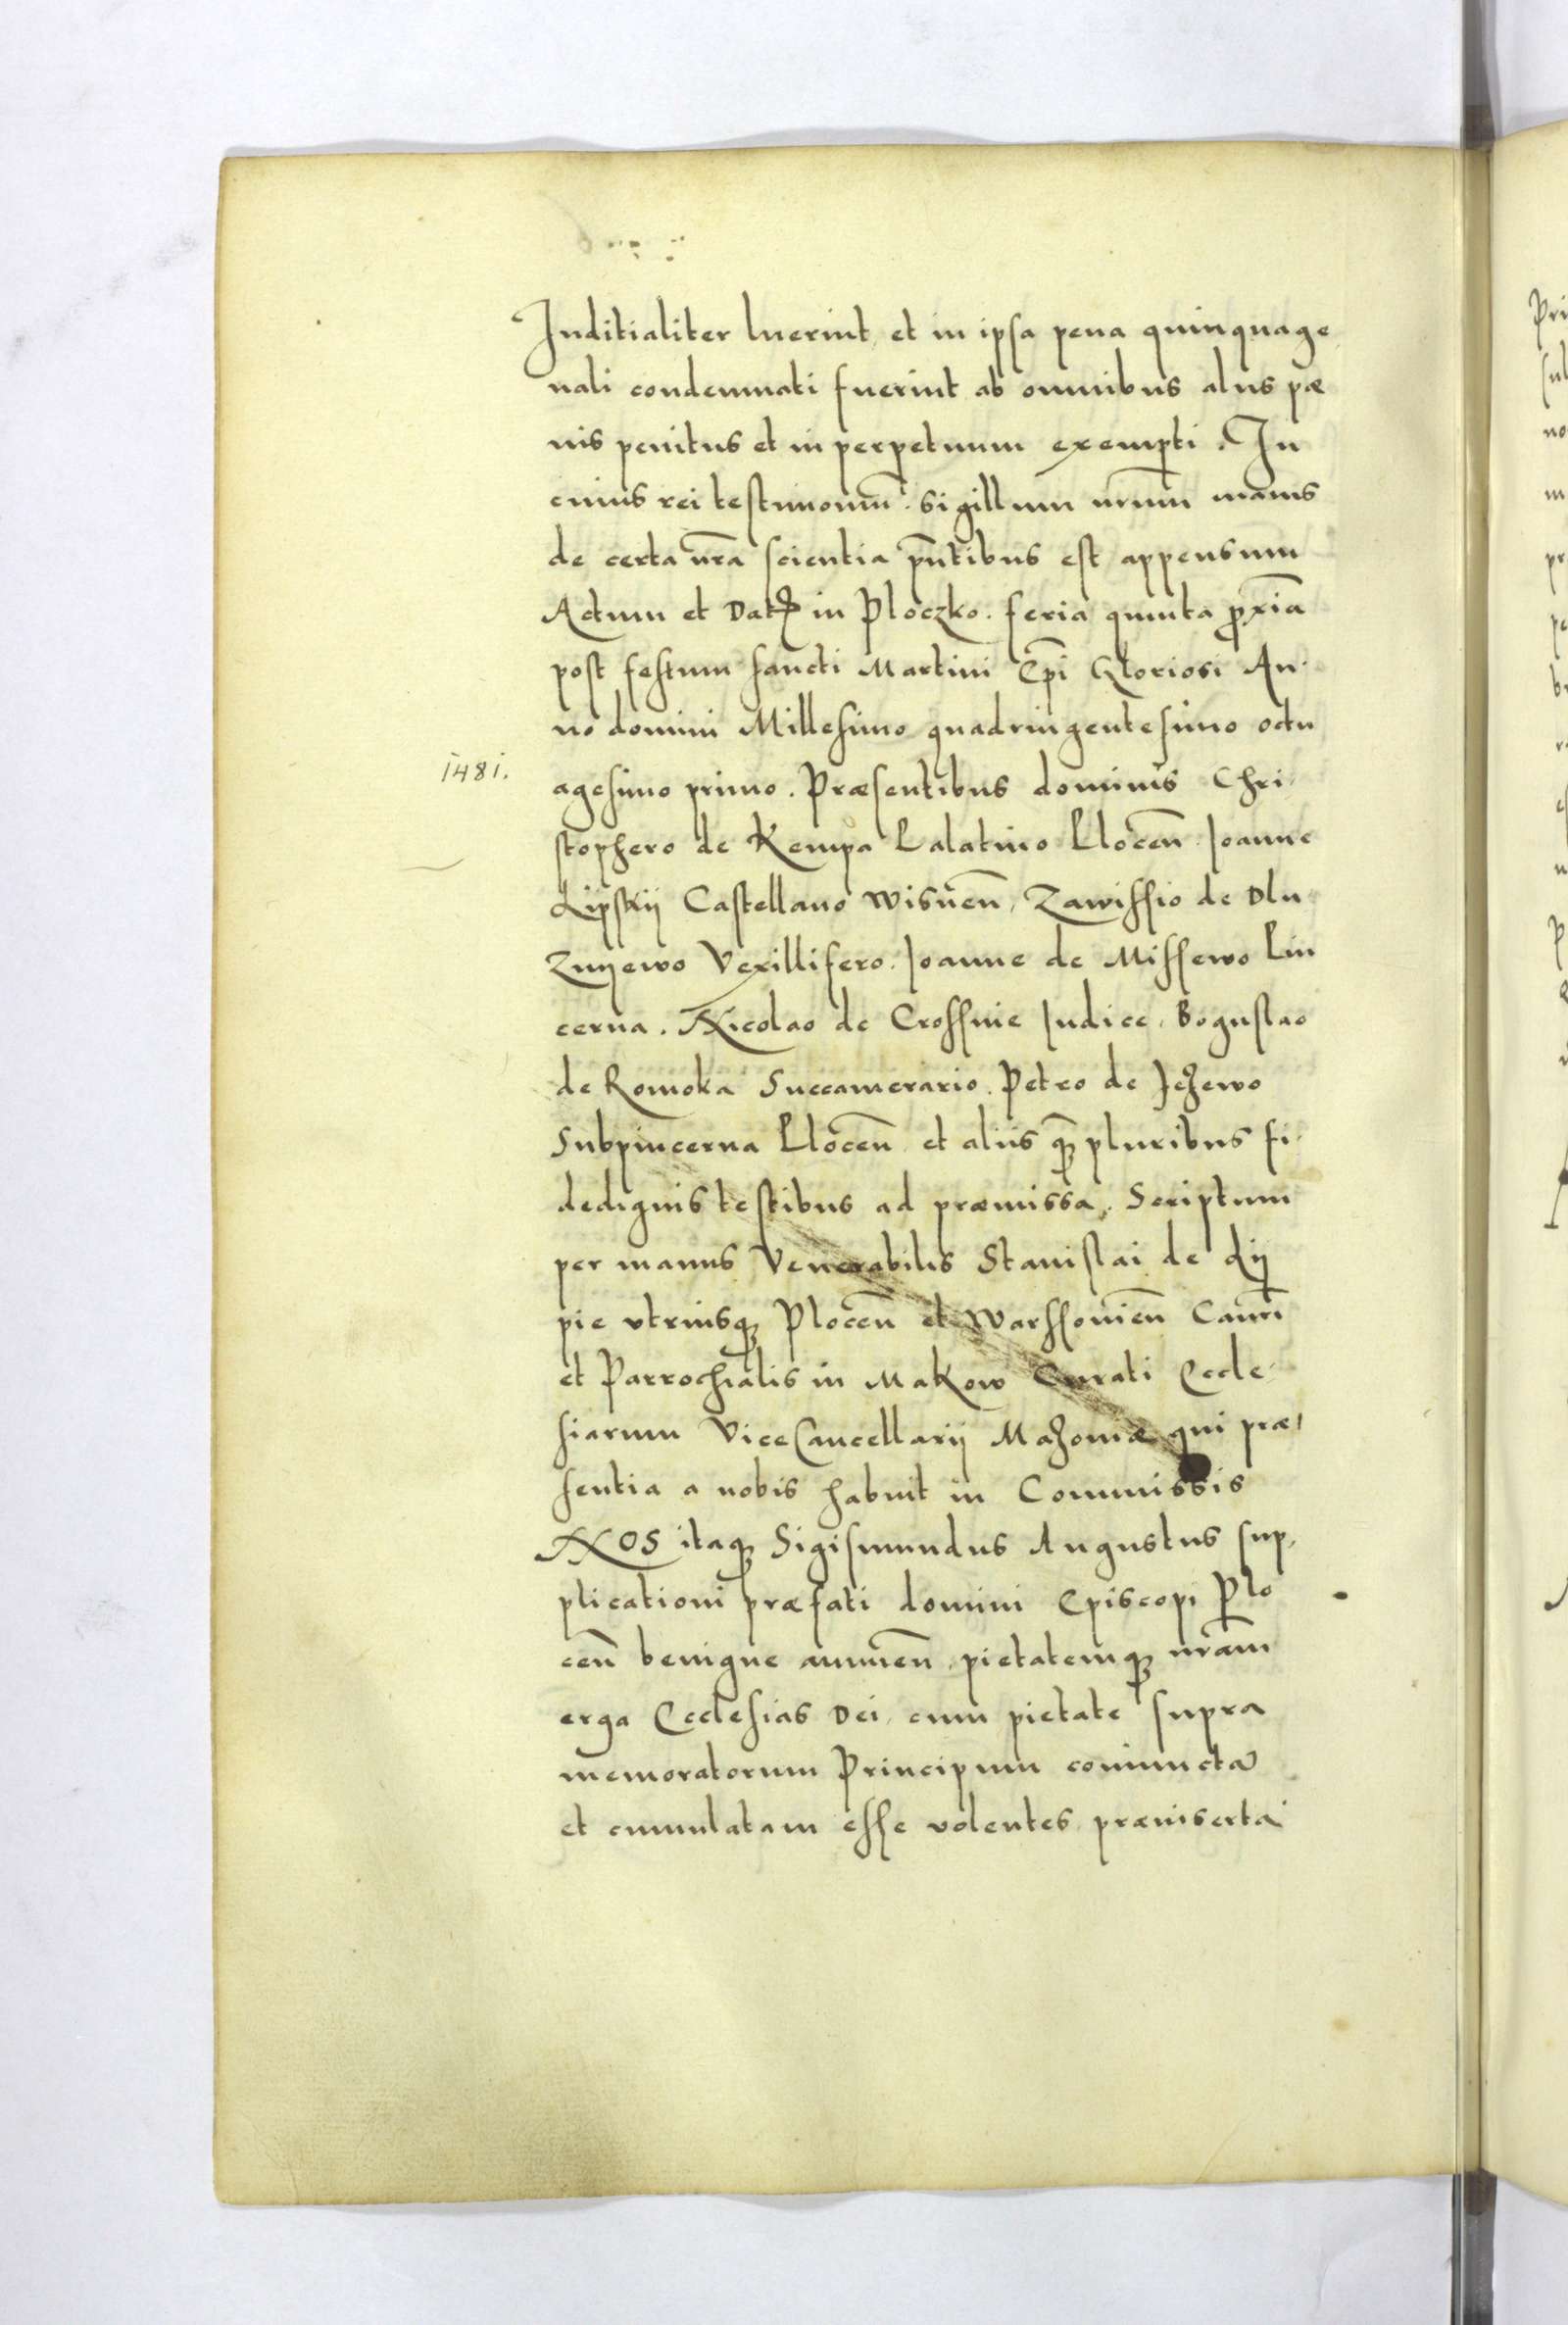 Iuditialiter luerint, et in ipsa pena quinquage
nali condemnati fuerint ab omnibus aliis pæ
nis penitus et in perpetuum exempti. In
cuius rei testimoniu͂. Sigillum nr͂um maius
de certa nr͂a scientia pn͂tibus est appensum
Actum et Datꝝ in Ploczko. feria quinta ꝓxia͂
post festum sancti Martini Ep͂i Gloriosi An-
no domini Millesimo quadringentesimo octu
1481.
agesimo primo. Præsentibus dominis Chri-
stophero de Kempa Palatino Plocen͂. Ioanne
Lipskij Castellano Wisnen͂, Zawissio de Dlu
Znyewo Vexillifero. Ioanne de Missewo Pin
cerna. Nicolao de Crossnie Iudice, Boguslao
de Romoka Succamerario. Petro de Jeżewo
Subpincerna Plocen͂ et aliis qꝫ pluribus fi-
dedignis testibus ad præmissa. Scriptum
per manus Venerabilis Stanislai de Lij
pie vtriusqꝫ Plocen͂ et Warssouien͂ Canri͂
et Parrochialis in Makow Curati Eccle-
siarum ViceCancellarij Mazouiæ qui præ/
sentia a nobis habuit in Commissis
NOS itaqꝫ Sigismundus Augustus sup,
plicationi præfati domini Episcopi Plo
cen͂ benigne annuen͂, pietatemqꝫ nr͂am
erga Ecclesias Dei, cum pietate supra
memoratorum Principum coniuncta͂
et cumulatam esse volentes præinserta